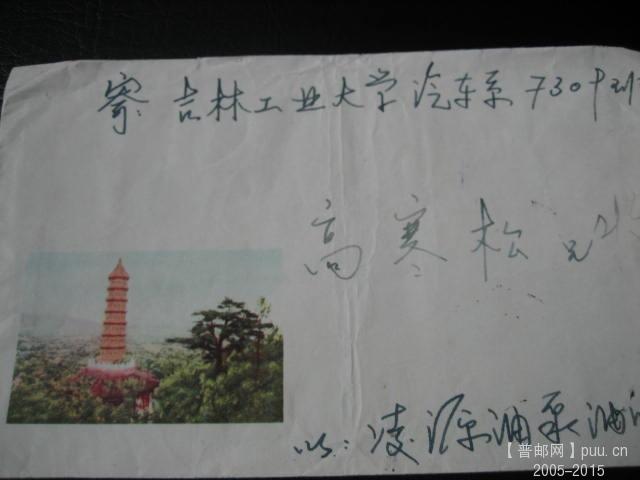 寄 吉林工业大学汽车系 730
高寒松 兄收
凌源油泵油
【普邮网】puu.cn
2005-2015